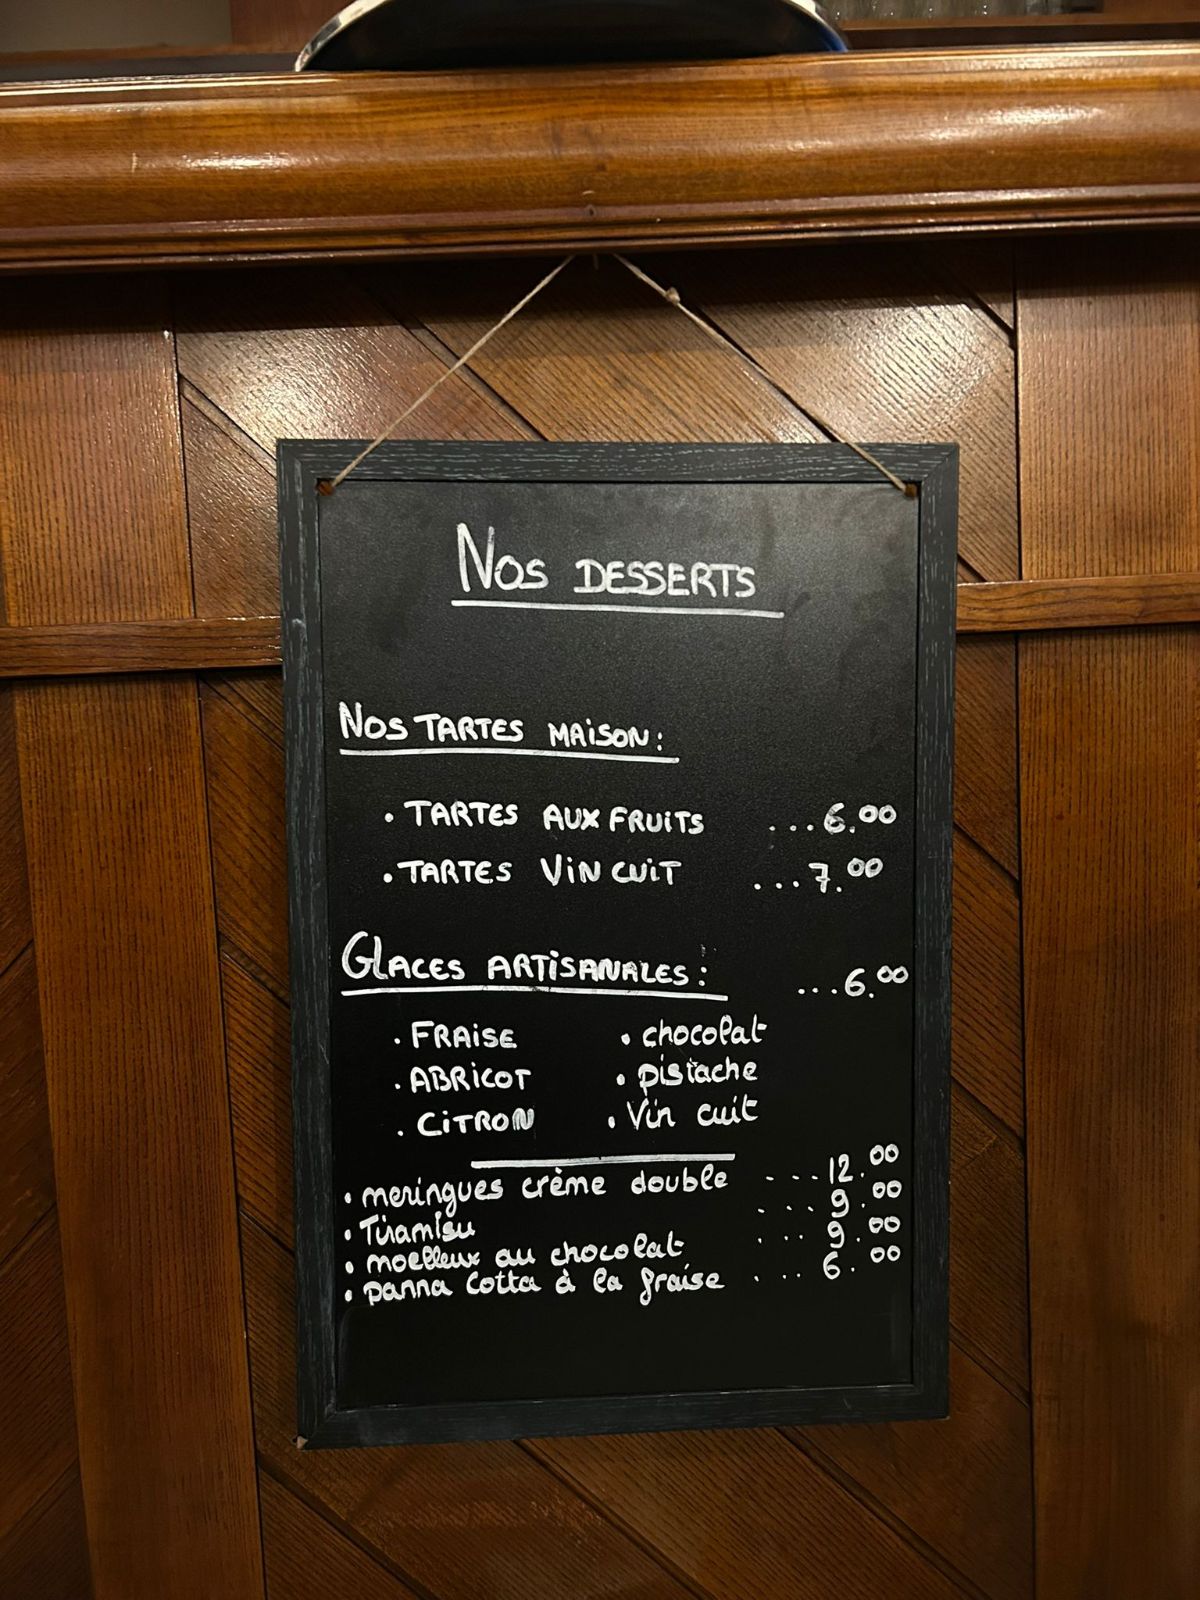 Nos DESSERTS
NOS TARTES MAiSON:
. TARTES AUX FRUiTS ...6.00
. TARTES ViN CUiT ...7.00
GLACES ARTiSANALES: ...6.00
. FRAiSE . chocolat
. ABRiCOT . pistache
. CiTRON . Vin cuit
. meringues crème double ...12.00
. Tiramisu ...9.00
. moelleux au chocolat ...9.00
. panna cotta à la fraise ...6.00